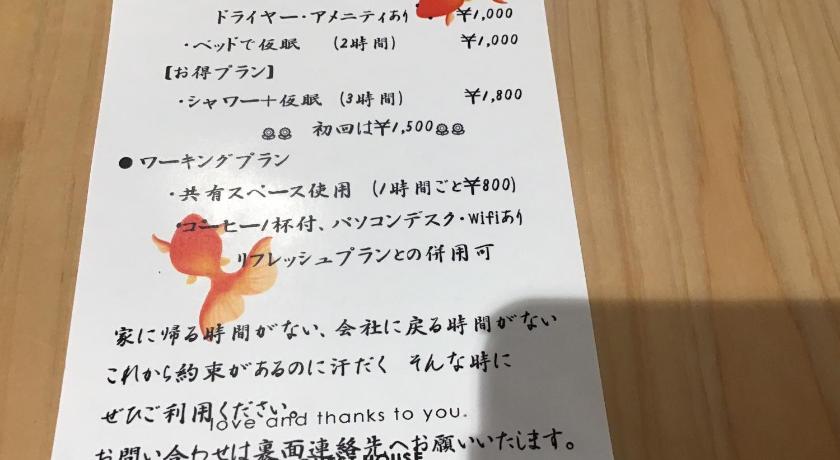 ドライヤー・アメニティあり ¥1,000
・ベッドで仮眠 (2時間) ¥1,000
【お得プラン】
・シャワー+仮眠 (3時間) ¥1,800
初回は¥1,500
●ワーキングプラン
・共有スペース使用 (1時間ごと¥800)
・コーヒー1杯付、パソコンデスク・Wifiあり
リフレッシュプランとの併用可
家に帰る時間がない、会社に戻る時間がない
これから約束があるのに汗だく そんな時に
ぜひご利用ください。
love and thanks to you.
お問い合わせは裏面連絡先へお願いいたします。
HOUSE